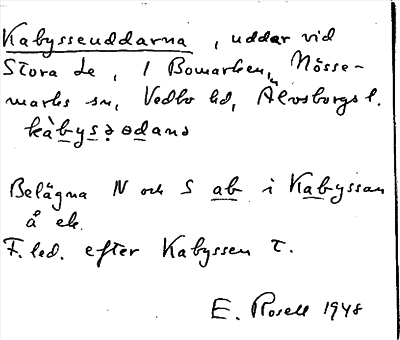 Kabysseuddarna, uddar vid
Stora Le, i Bomarken, Nösse-
marks sn, Vedbo hd, Älvsborgs l.
kàbysəɷdana
Belägna N och S ab i Kabyssan
å ek.
F. led. efter Kabyssen T.
E. Rosell 1948